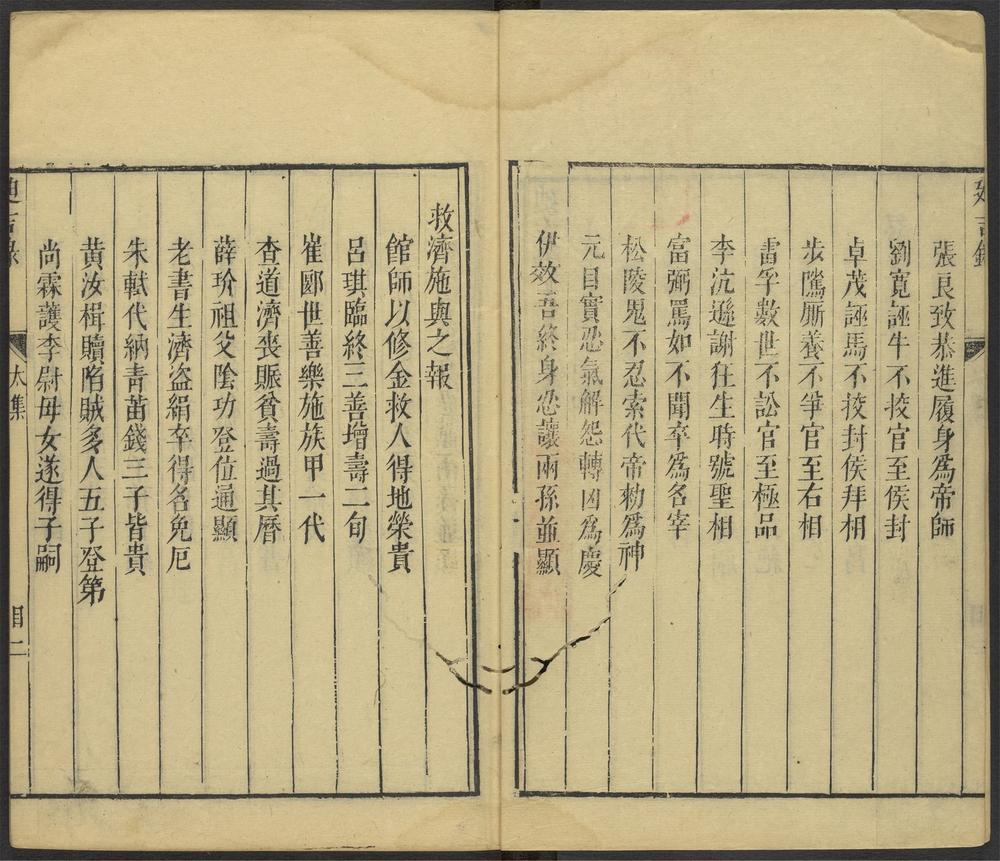 張良致恭進履身爲帝師
劉寬誣牛不挍官至侯封
卓茂誣馬不挍封侯拜相
步隲厮養不爭官至右相
雷孚數世不訟官至極品
李沆遜謝狂生時號聖相
富弼罵如不聞卒爲名宰
松陵鬼不忍索代帝勑爲神
元自實忍氣解怨轉凶爲慶
伊效吾終身忍讓兩孫並顯
救濟施與之報
館師以修金救人得地榮貴
呂琪臨終三善增壽二旬
崔郾世善樂施族甲一代
查道濟喪賑貧壽過其曆
薛玢祖父陰功登位通顯
老書生濟盜絹卒得名免厄
朱軾代納靑苗錢三子皆貴
黃汝楫贖陷賊多人五子登第
尚霖護李尉母女遂得子嗣
迪吉錄
太集
目二